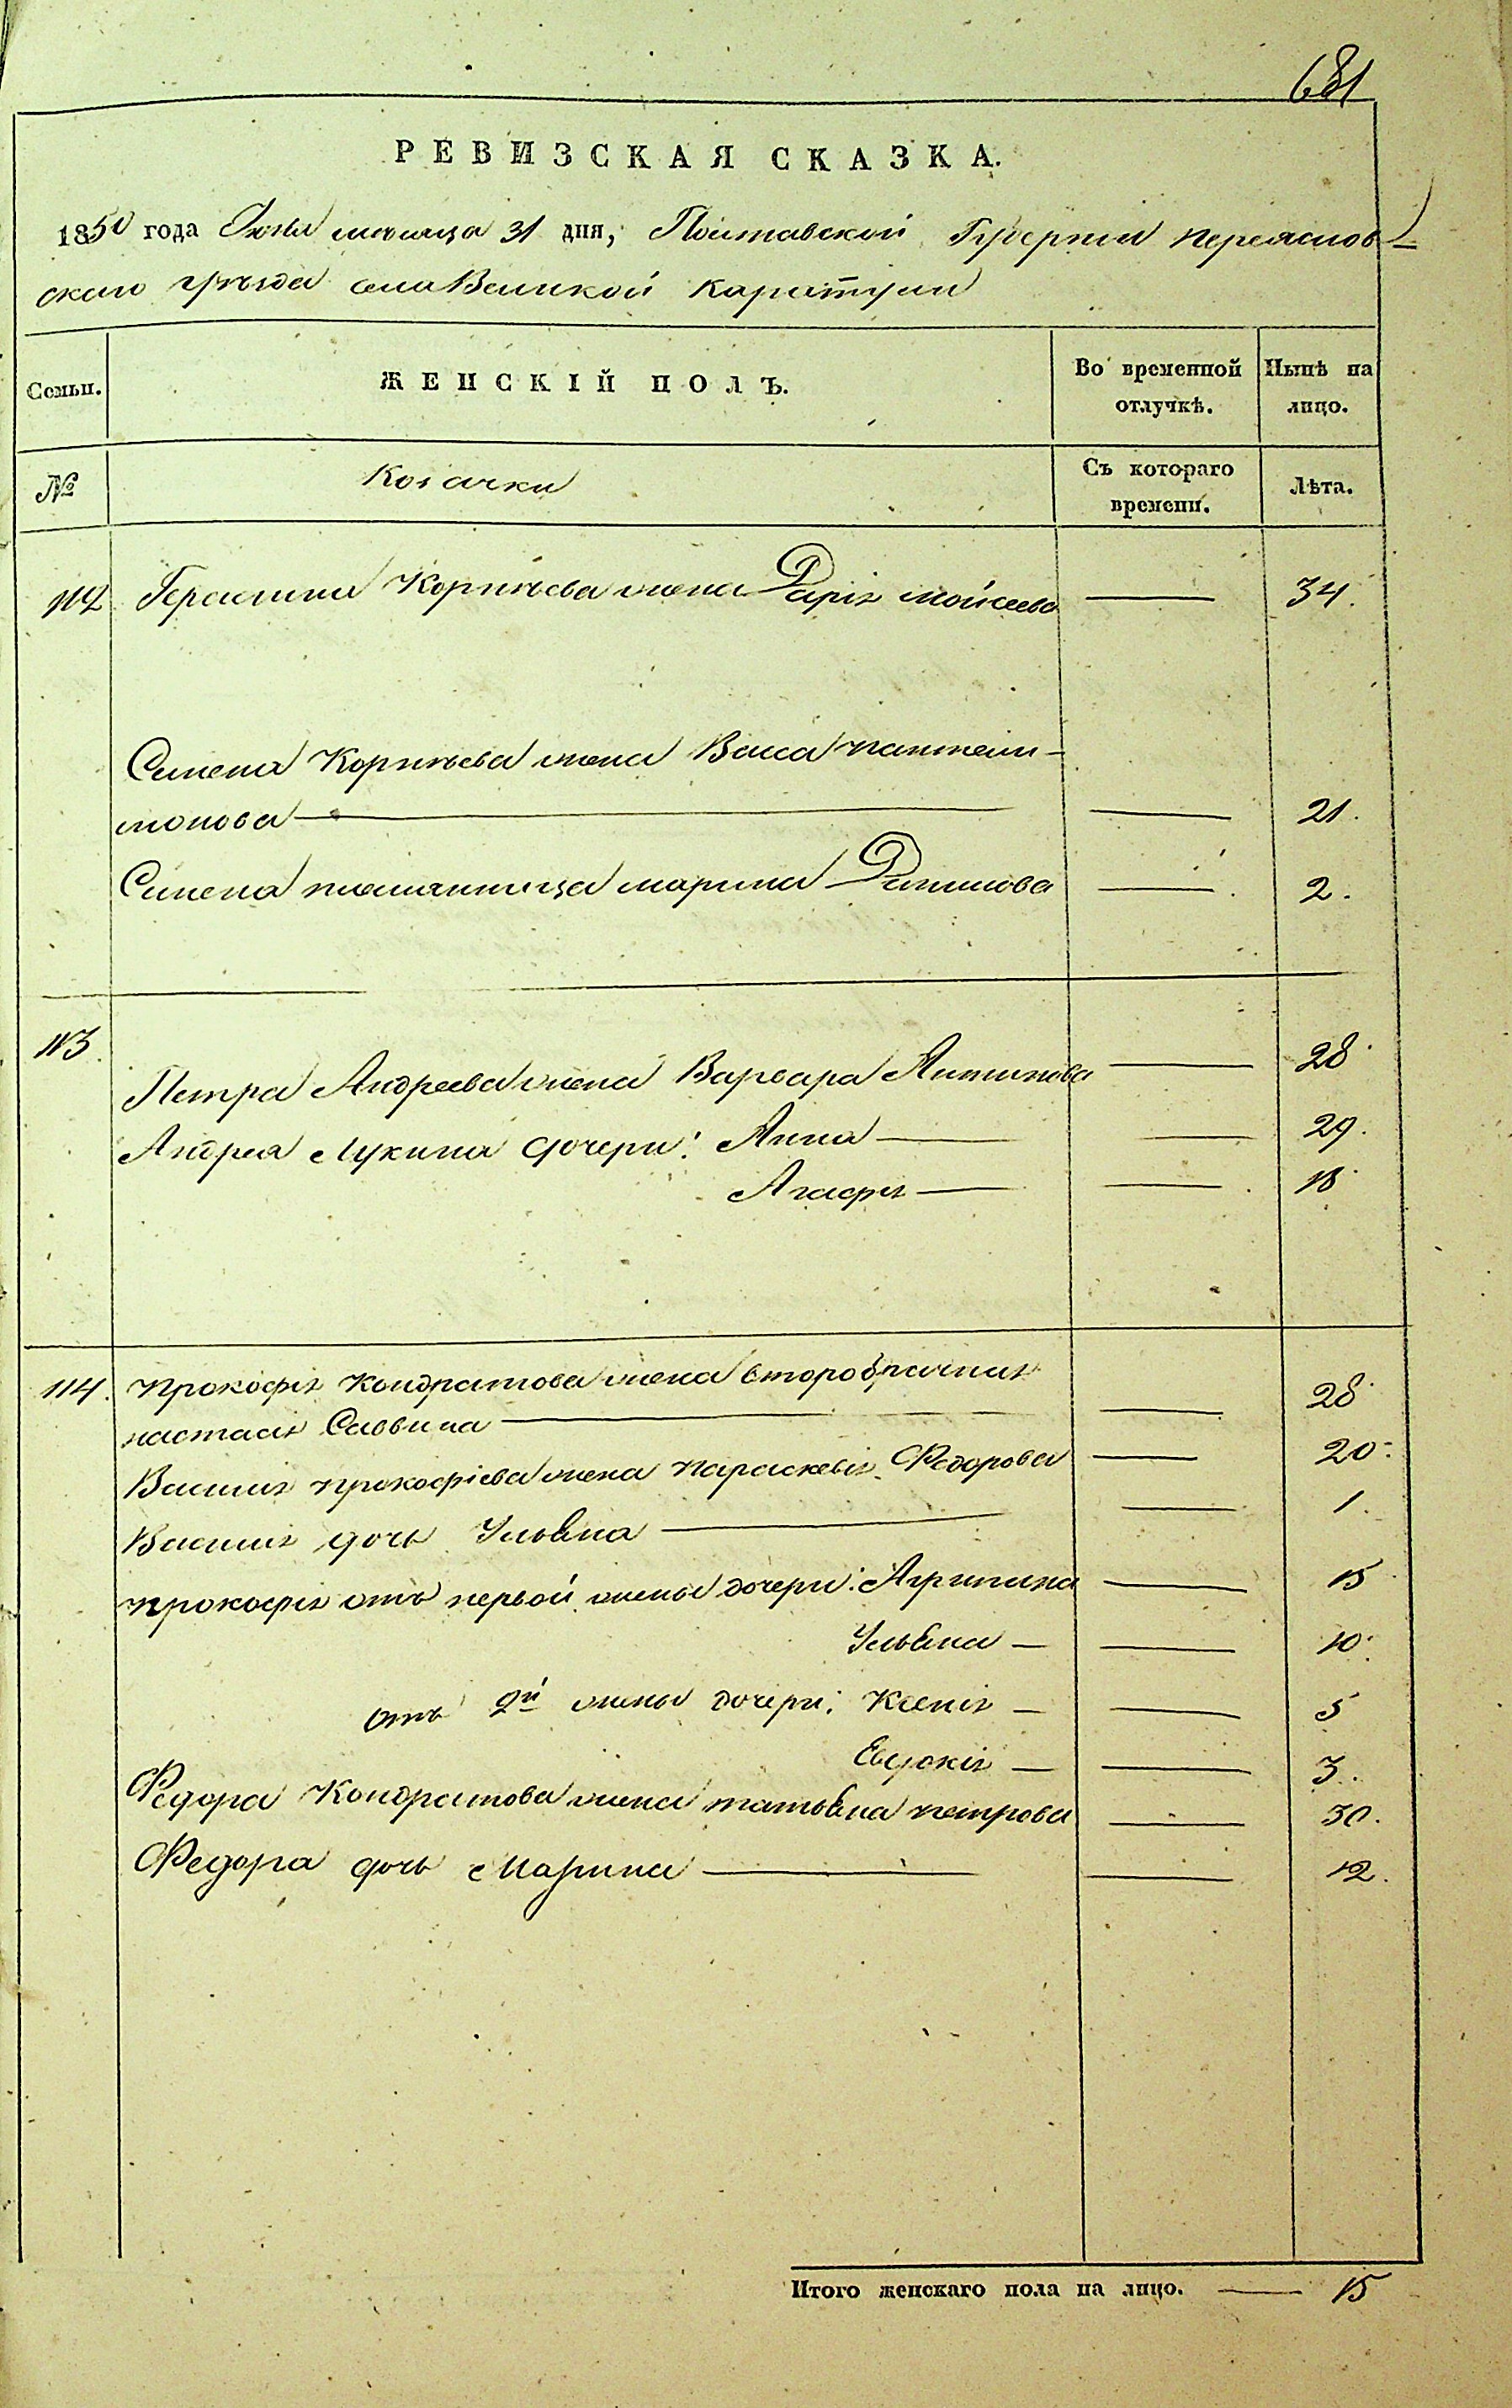 681
РЕВИЗСКАЯ СКАЗКА.
1850 года Июля месяца 31 дня, Полтавской Губернии Переяслов-
скаго уѣзда села Великой Каратули
Семьи.
ЖЕНСКІЙ ПОЛЪ.
Во временной отлучкѣ.
Нынѣ на лицо.
№
Козачки
Съ котораго времени.
Лѣта.
112 Герасима Корнѣева жена Дарія Мойсеева — 34.
Симена Корнѣева жена Васса Пантели-
монова — — 21.
Симена племянница Марина Данилова — 2.
113.
Петра Андреева жена Варвара Антипова — 28
Андрея Лукина дочери: Анна — — 29.
Агафія — — 18
114. Прокофія Кондратова жена второбрачная
Настасія Саввина — — 28
Василія Прокофіева жена Параскевія Федорова — 20.
Василія дочь Ульяна — — 1.
Прокофія отъ первой жены дочери: Агрипина — 15
Ульяна — — 10.
отъ 2й жены дочери: Ксенія — — 5
Евдокія — — 3.
Федора Кондратова жена Татьяна Петрова — 30.
Федора дочь Марина — — 12.
Итого женскаго пола на лицо. — 15